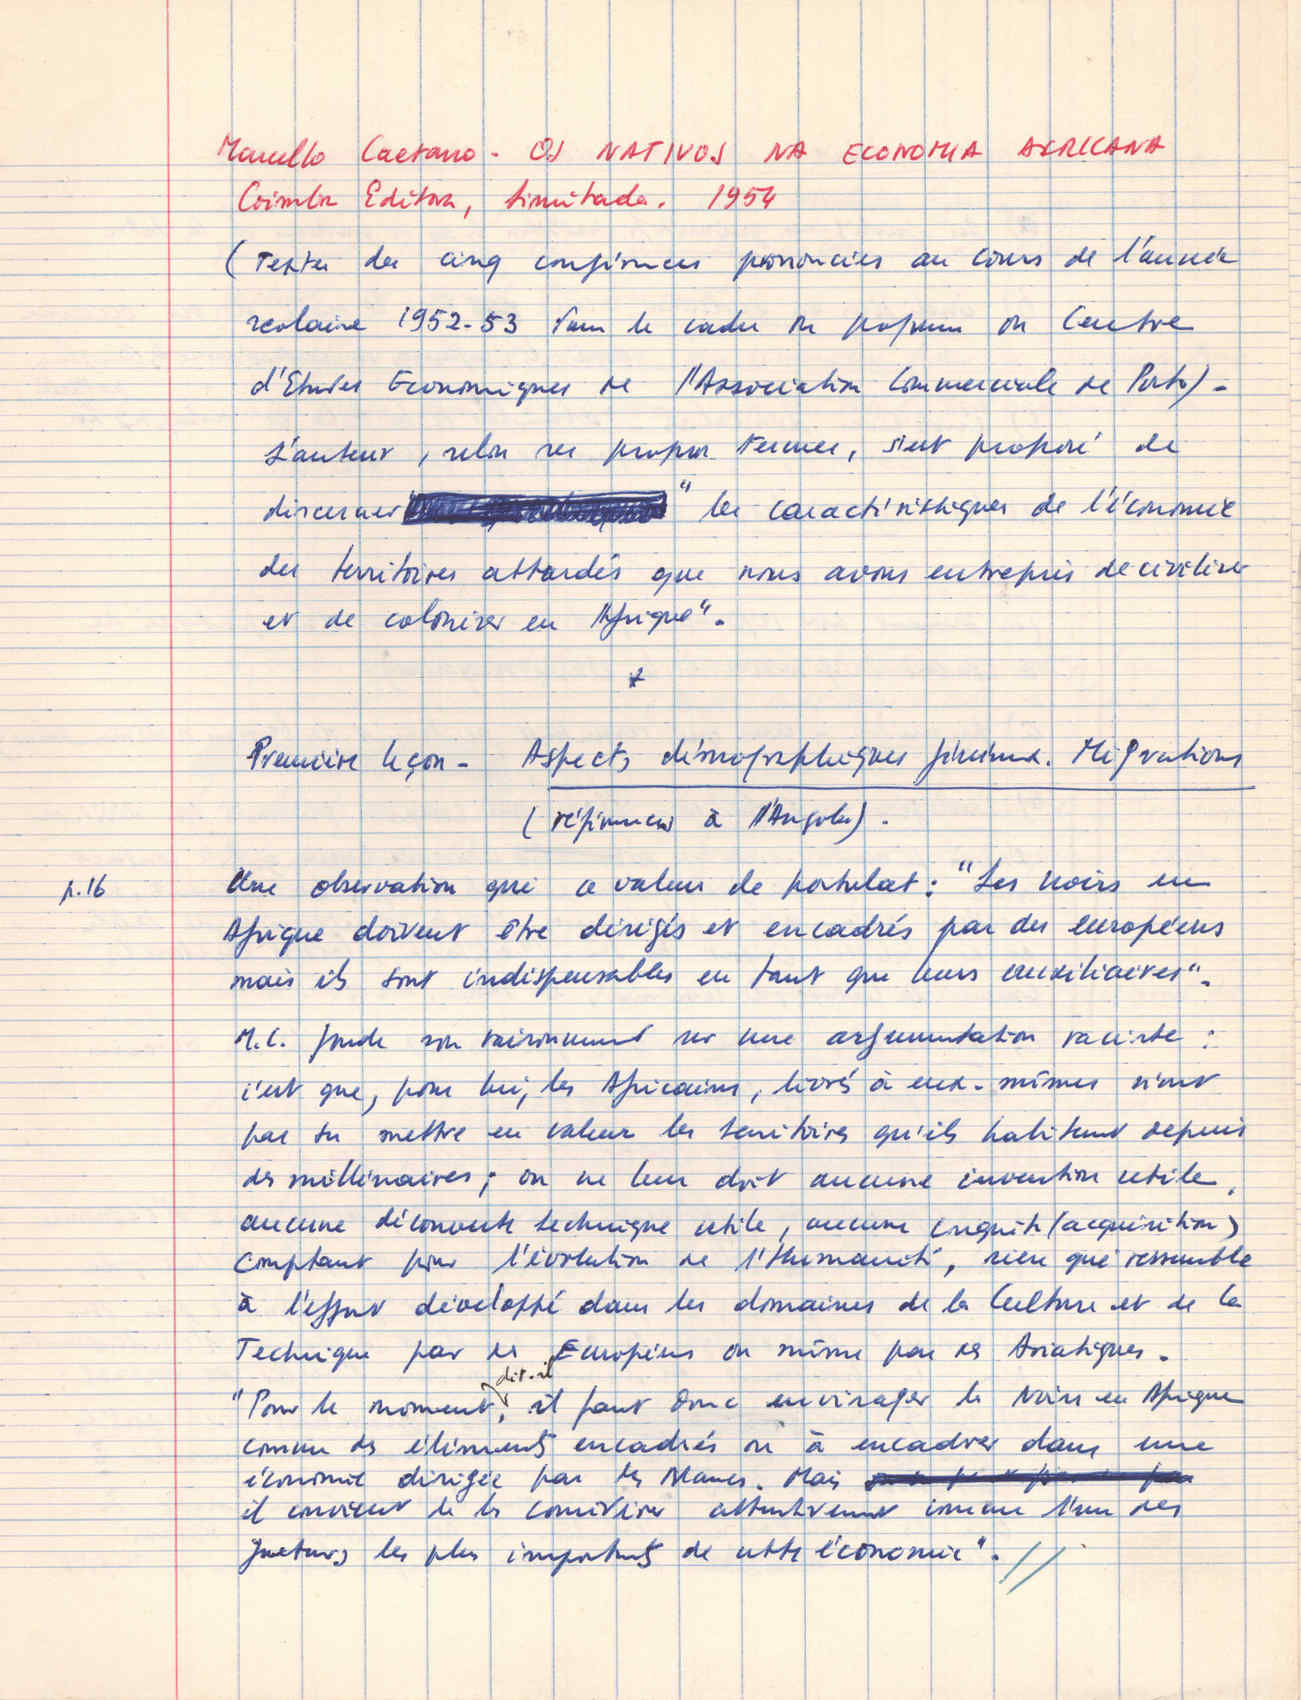 Marcello Caetano - OS NATIVOS NA ECONOMIA AFRICANA
Coimbra Editora, Limitada. 1954
(Textes des cinq conférences prononcées au cours de l'année
scolaire 1952-53 dans le cadre du programme du Centre
d'Etudes Economiques de l'Association Commerciale de Porto) -
L'auteur, selon ses propres termes, s'est proposé de
discerner " les caractéristiques de l'économie
des territoires attardés que nous avons entrepris de civiliser
et de coloniser en Afrique".
*
Première leçon - Aspects démographiques généraux. Migrations
(références à l'Angola).
p.16
Une observation qui a valeur de postulat : "Les noirs en
Afrique doivent être dirigés et encadrés par des européens
mais ils sont indispensables en tant que leurs auxiliaires".
M.C. fonde son raisonnement sur une argumentation raciste :
c'est que, pour lui, les Africains, livrés à eux-mêmes n'ont
pas su mettre en valeur les territoires qu'ils habitent depuis
des millénaires ; on ne leur doit aucune invention utile,
aucune découverte technique utile, aucune conquête (acquisition)
comptant pour l'évolution de l'Humanité, rien qui ressemble
à l'effort développé dans les domaines de la Culture et de la
Technique par les Européens ou même par les Asiatiques.
"Pour le moment, dit-il, il faut donc envisager les Noirs en Afrique
comme des éléments encadrés ou à encadrer dans une
économie dirigée par les Blancs. Mais
il convient de les considérer attentivement comme l'un des
facteurs les plus importants de cette économie".